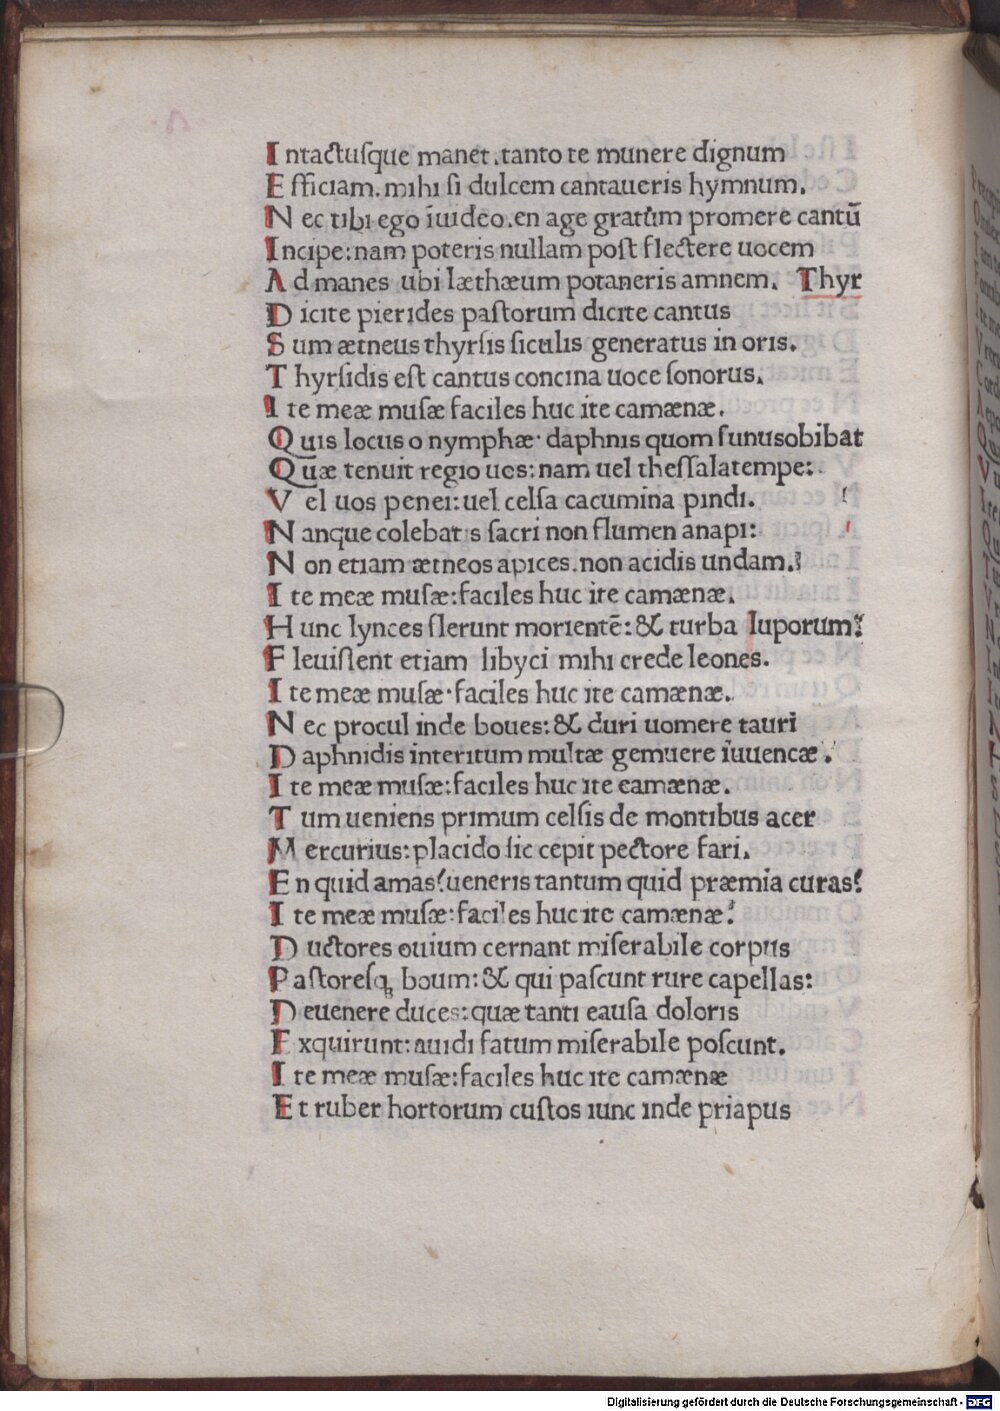 I ntactuſque manet.tanto te munere dignum
E fficiam. mihi ſi dulcem cantaueris hymnum.
N ec tibi ego īuideo.en age gratum promere cantū
I ncipe: nam poteris nullam poſt flectere uocem
A d manes ubi læthæum potaneris amnem. Thyr
D icite pierides paſtorum dicite cantus
S um ætneus thyrſis ſiculis generatus in oris.
T hyrſidis eſt cantus concina uoce ſonorus.
I te meæ muſæ faciles huc ite camænæ.
Q uis locus o nymphæ· daphnis quom funusobibat
Q uæ tenuit regio uos: nam uel theſſalatempe:
V el uos penei: uel celſa cacumina pindi.
N anque colebat s ſacri non flumen anapi:
N on etiam ætneos apices.non acidis undam.
I te meæ muſæ: faciles huc ite camænæ.
H unc lynces flerunt morientē: & turba luporum?
F leuiſſent etiam libyci mihi crede leones.
I te meæ muſæ· faciles huc ite camænæ.
N ec procul inde boues: & duri uomere tauri
D aphnidis interitum multæ gemuere iuuencæ.
I te meæ muſæ: faciles huc ite eamænæ.
T um ueniens primum celſis de montibus acer
M ercurius: placido ſic cepit pectore fari.
E n quid amas? ueneris tantum quid præmia curas?
I te meæ muſæ: faciles huc ite camænæ?
D uctores ouium cernant miſerabile corpus
P aſtoreſqꝫ boum: & qui paſcunt rure capellas:
D euenere duces: quæ tanti eauſa doloris
E xquirunt: auidi fatum miſerabile poſcunt.
I te meæ muſæ: faciles huc ite camænæ
E t ruber hortorum cuſtos iunc inde priapus
Digitalisierung gefördert durch die Deutsche Forschungsgemeinschaft - DFG